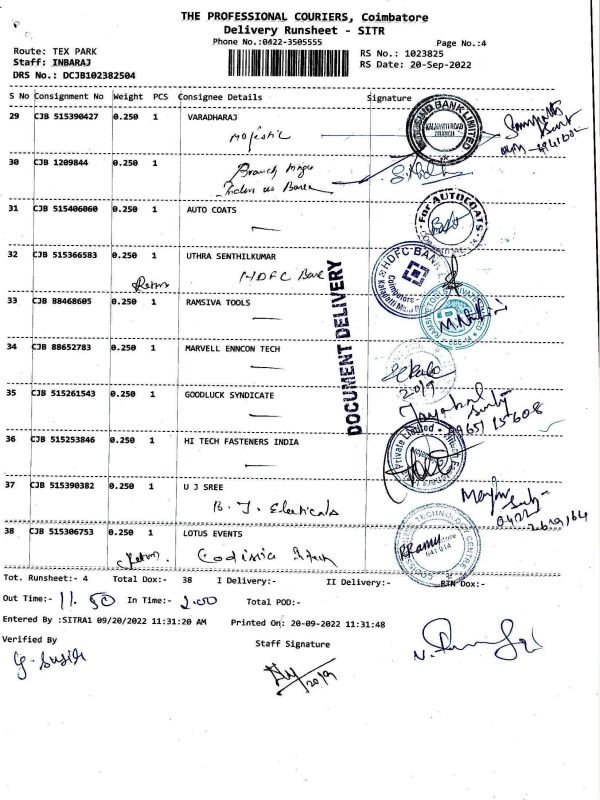 THE PROFESSIONAL COURIERS, Coimbatore
Delivery Runsheet - SITR
Phone No.:0422-3505555 Page No.:4
Route: TEX PARK RS No.: 1023825
Staff: INBARAJ RS Date: 20-Sep-2022
DRS No.: DCJB102382504
S No Consignment No Weight PCS Consignee Details Signature
29 CJB 515390427 0.250 1 VARADHARAJ
Majestic
KALAPATTI ROAD BRANCH
30 CJB 1209844 0.250 1
Branch
31 CJB 515406060 0.250 1 AUTO COATS
For AUTOCOATS
32 CJB 515366583 0.250 1 UTHRA SENTHILKUMAR
HDFC Bank
HDFC BANK
Return
33 CJB 88468605 0.250 1 RAMSIVA TOOLS
DOCUMENT DELIVERY
34 CJB 88652783 0.250 1 MARVELL ENNCON TECH
20/9
35 CJB 515261543 0.250 1 GOODLUCK SYNDICATE
36 CJB 515253846 0.250 1 HI TECH FASTENERS INDIA
Private Limited
37 CJB 515390382 0.250 1 U J SREE
B. J. Electricals
38 CJB 515306753 0.250 1 LOTUS EVENTS
Return
TECHNOLOGY CENTRE
Tot. Runsheet:- 4 Total Dox:- 38 I Delivery:- II Delivery:- RTN Dox:-
Out Time:- 11.50 In Time:- 2.00 Total POD:-
Entered By :SITRA1 09/20/2022 11:31:20 AM Printed On: 20-09-2022 11:31:48
Verified By Staff Signature
20/9